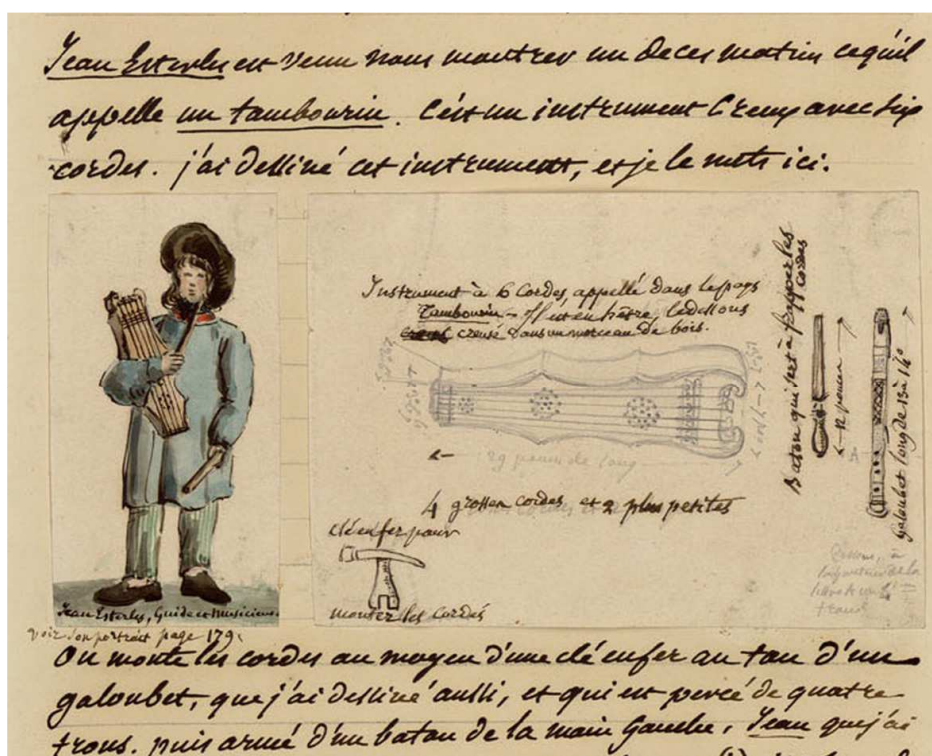 Jean Esterles est venu nous montrer un de ces matins ce qu'il
appelle un tambourin. C'est un instrument creux avec six
cordes. j'ai dessiné cet instrument, et je le mets ici.
Instrument à 6 Cordes, appellé dans le pays
Tambourin - il est en hêtre, le dessous
creux creusé dans un morceau de bois.
29 pouces de long
4 grosses cordes et 2 plus petites
clé en fer pour
monter les cordes
Baton qui sert à frapper les
cordes
12 pouces
A
Galoubet long de 13 à 14º
Jean Esterles, Guide et Musicien
voir son portrait page 179.
On monte les cordes au moyen d'une clé en fer au ton d'un
galoubet, que j'ai dessiné aussi, et qui est percé de quatre
trous. puis armé d'un baton de la main Gauche, Jean que j'ai